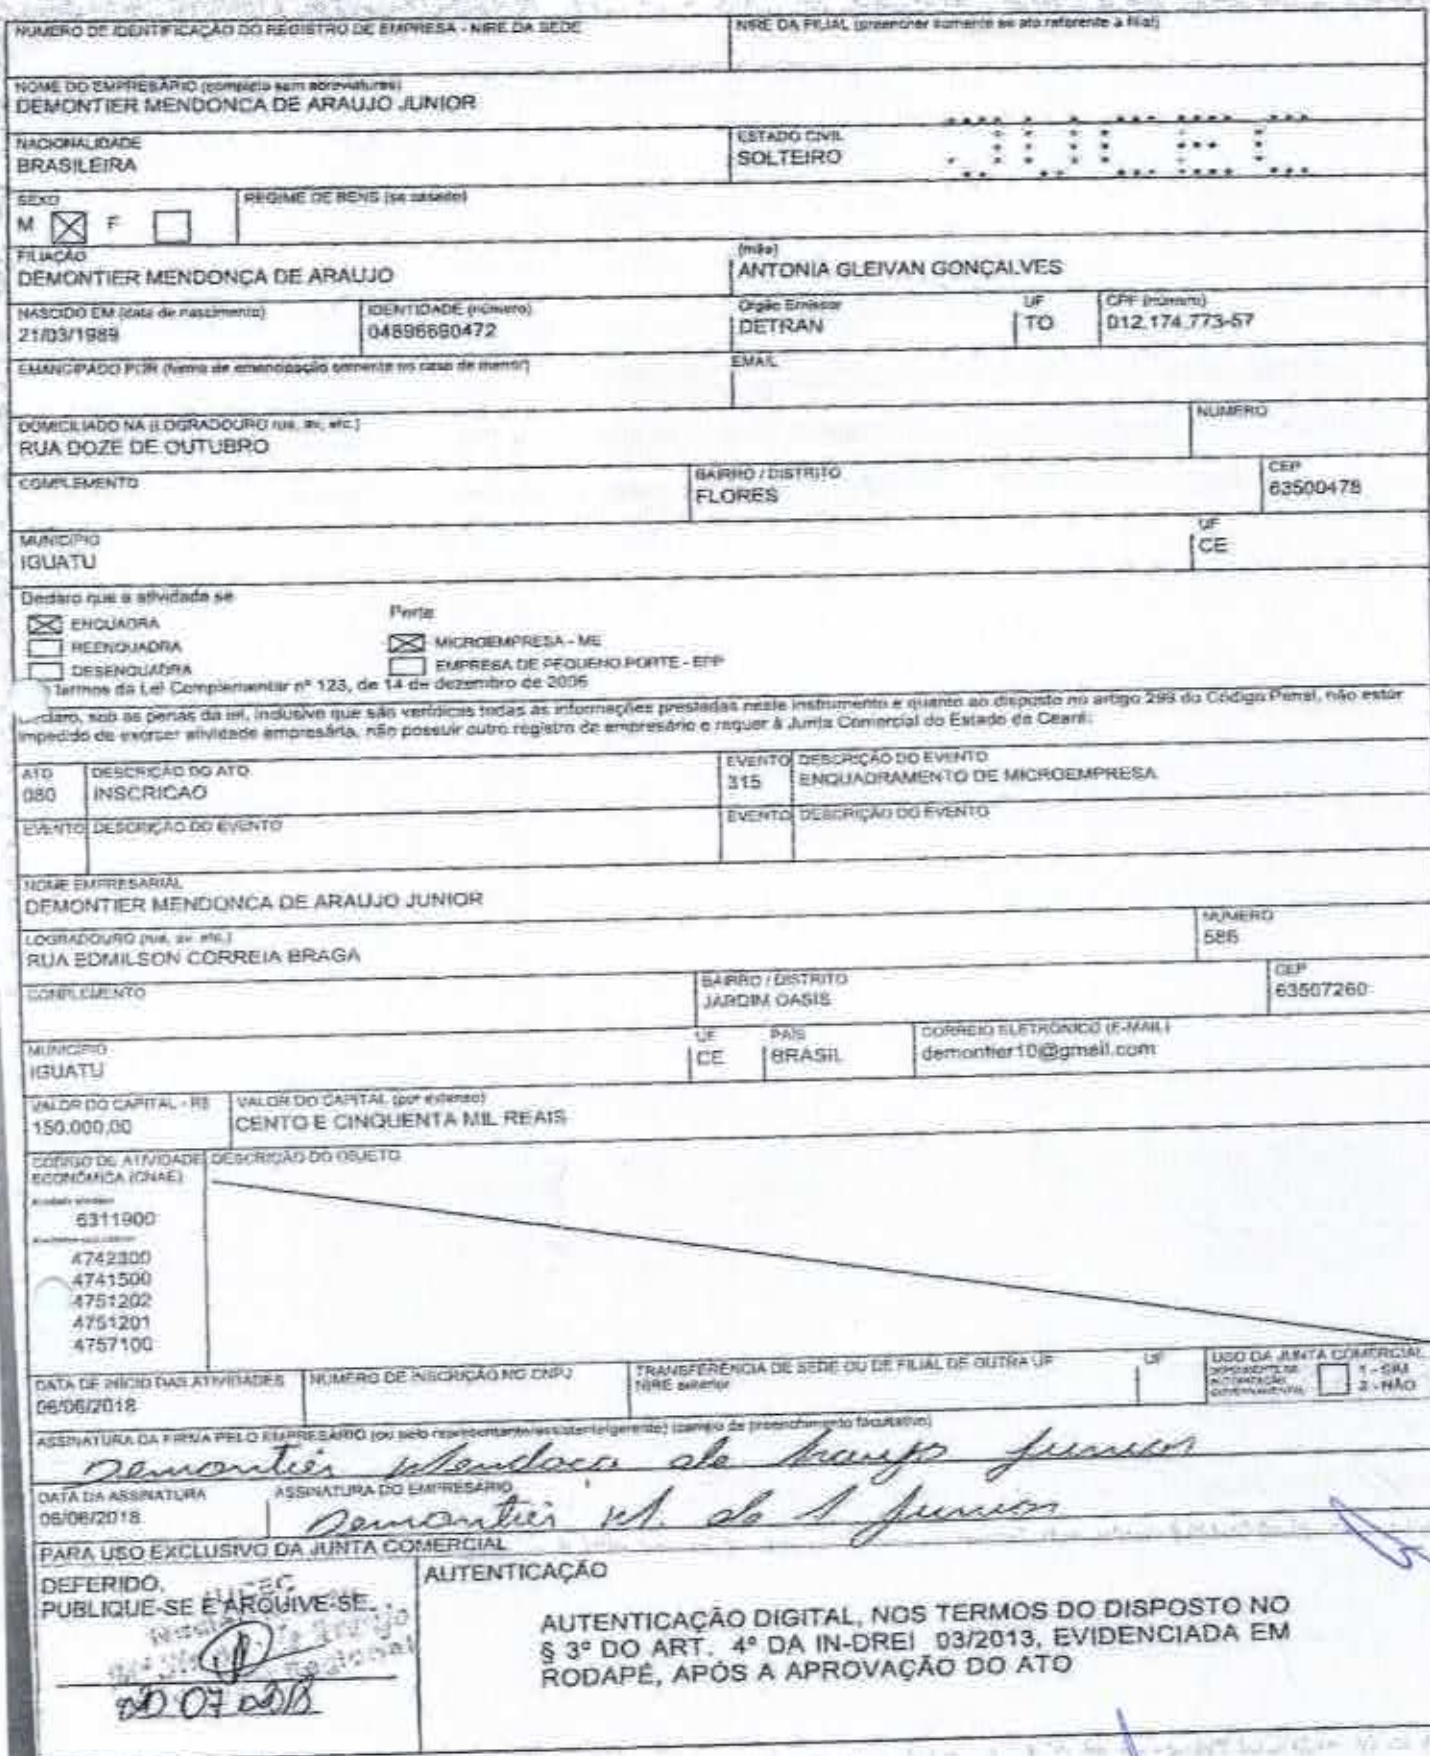 NÚMERO DE IDENTIFICAÇÃO DO REGISTRO DE EMPRESA - NIRE DA SEDE
NIRE DA FILIAL (preencher somente se ato referente a filial)
NOME DO EMPRESÁRIO (completo sem abreviaturas)
DEMONTIER MENDONCA DE ARAUJO JUNIOR
NACIONALIDADE
BRASILEIRA
ESTADO CIVIL
SOLTEIRO
SEXO
M F
REGIME DE BENS (se casado)
FILIAÇÃO
DEMONTIER MENDONÇA DE ARAUJO
(mãe)
ANTONIA GLEIVAN GONÇALVES
NASCIDO EM (data de nascimento)
21/03/1989
IDENTIDADE (número)
04896690472
Orgão Emissor
DETRAN
UF
TO
CPF (número)
012.174.773-57
EMANCIPADO POR (forma de emancipação somente no caso de menor)
EMAIL
DOMICILIADO NA (LOGRADOURO rua, av, etc.)
RUA DOZE DE OUTUBRO
NÚMERO
COMPLEMENTO
BAIRRO / DISTRITO
FLORES
CEP
63500478
MUNICÍPIO
IGUATU
UF
CE
Declaro que a atividade se
ENQUADRA
REENQUADRA
DESENQUADRA
Porte
MICROEMPRESA - ME
EMPRESA DE PEQUENO PORTE - EPP
termos da Lei Complementar nº 123, de 14 de dezembro de 2006
sob as penas da lei, inclusive que são verídicas todas as informações prestadas neste instrumento e quanto ao disposto no artigo 299 do Código Penal, não estar
impedido de exercer atividade empresária, não possuir outro registro de empresário e requer à Junta Comercial do Estado de Ceará:
ATO
080
DESCRIÇÃO DO ATO
INSCRICAO
EVENTO
315
DESCRIÇÃO DO EVENTO
ENQUADRAMENTO DE MICROEMPRESA
EVENTO DESCRIÇÃO DO EVENTO
EVENTO DESCRIÇÃO DO EVENTO
NOME EMPRESARIAL
DEMONTIER MENDONCA DE ARAUJO JUNIOR
LOGRADOURO (rua, av. etc.)
RUA EDMILSON CORREIA BRAGA
NÚMERO
586
COMPLEMENTO
BAIRRO / DISTRITO
JARDIM OASIS
CEP
63507260
MUNICÍPIO
IGUATU
UF
CE
PAÍS
BRASIL
CORREIO ELETRÔNICO (E-MAIL)
demontier10@gmail.com
VALOR DO CAPITAL - R$
150.000,00
VALOR DO CAPITAL (por extenso)
CENTO E CINQUENTA MIL REAIS
CÓDIGO DE ATIVIDADE
ECONÔMICA (CNAE)
DESCRIÇÃO DO OBJETO
6311900
4742300
4741500
4751202
4751201
4757100
DATA DE INÍCIO DAS ATIVIDADES
06/06/2018
NÚMERO DE INSCRIÇÃO NO CNPJ
TRANSFERÊNCIA DE SEDE OU DE FILIAL DE OUTRA UF
NIRE anterior
UF
USO DA JUNTA COMERCIAL
1 - SIM
2 - NÃO
ASSINATURA DA FIRMA PELO EMPRESÁRIO (ou pelo representante/assistente/gerente) (campo de preenchimento facultativo)
Demontier Mendoca de Araujo Junior
DATA DA ASSINATURA
06/06/2018
ASSINATURA DO EMPRESÁRIO
Demontier M. de A Junior
PARA USO EXCLUSIVO DA JUNTA COMERCIAL
DEFERIDO.
PUBLIQUE-SE E ARQUIVE-SE.
AUTENTICAÇÃO
AUTENTICAÇÃO DIGITAL, NOS TERMOS DO DISPOSTO NO
§ 3º DO ART. 4º DA IN-DREI 03/2013, EVIDENCIADA EM
RODAPÉ, APÓS A APROVAÇÃO DO ATO